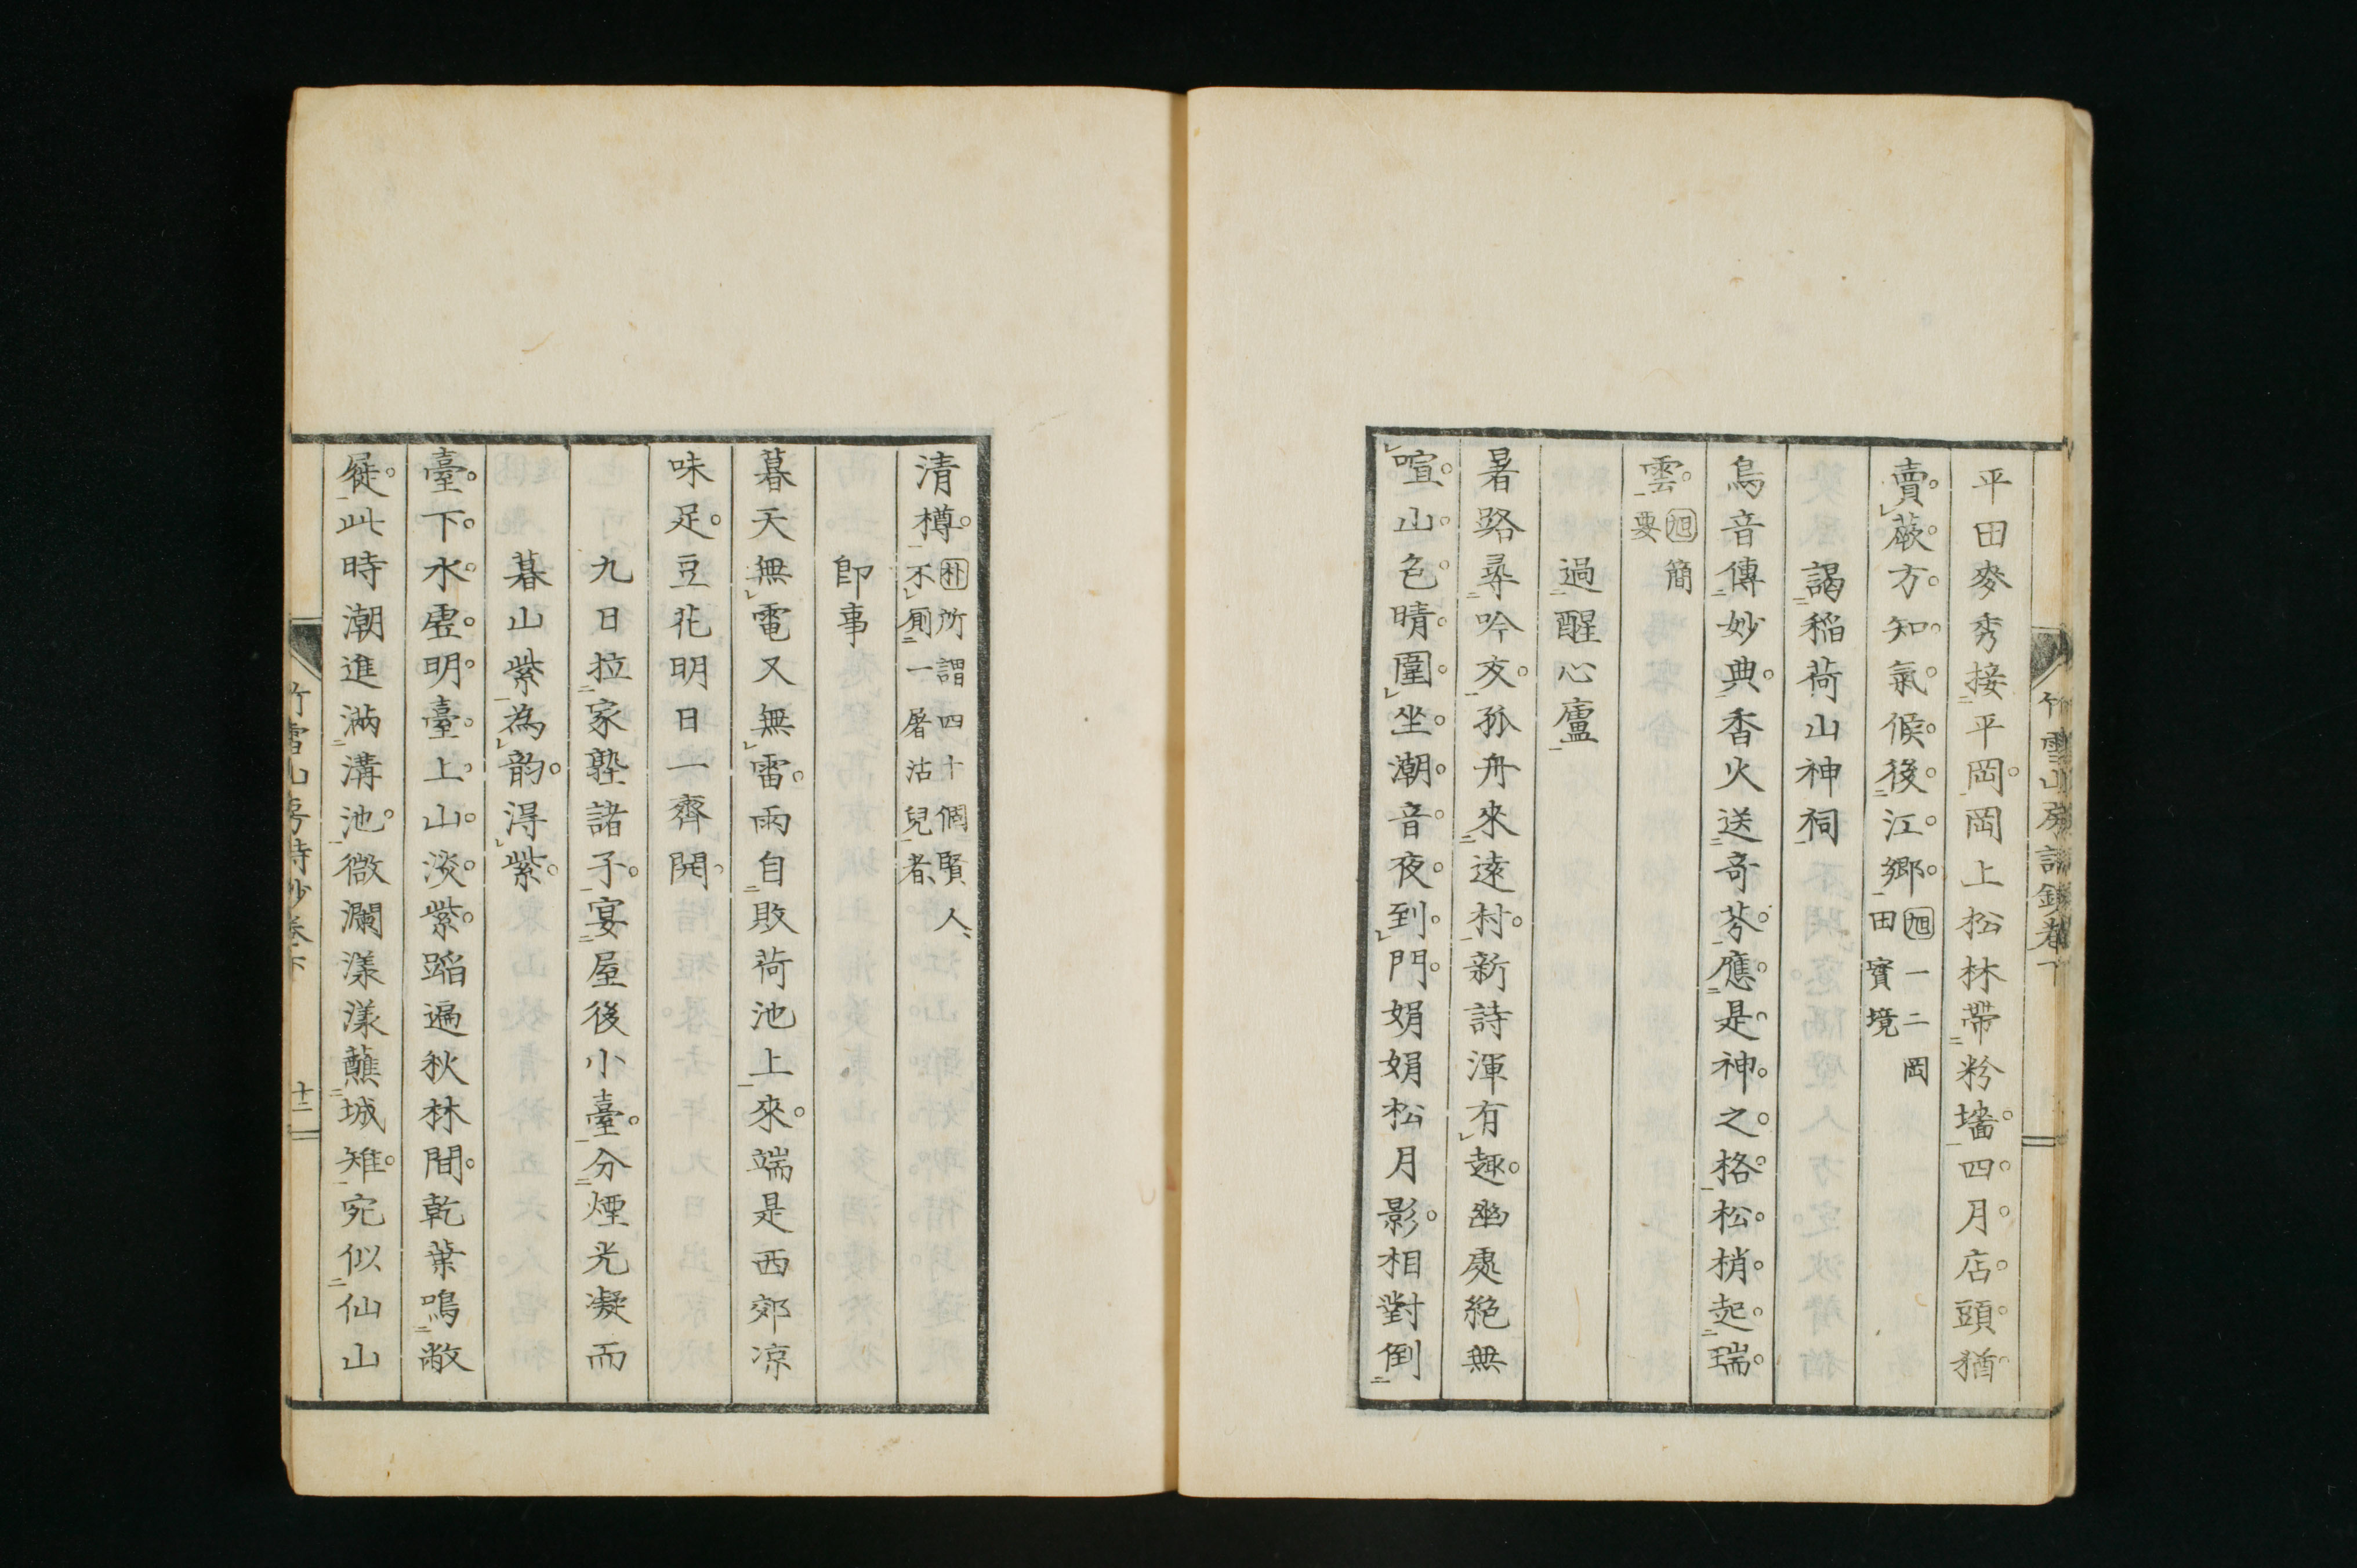 平田麥秀接平岡岡上松林帶粉墻四月店頭猶
賣蕨方知氣候後江鄉旭一二岡田實境
謁稲荷山神祠
鳥音傳妙典香火送奇芬應是神之格松梢起瑞
雲旭簡要
過醒心廬
暑路尋吟交孤舟來遠村新詩渾有趣幽處絕無
喧山色晴圍坐潮音夜到門娟娟松月影相對倒
清樽朴所謂四十個賢人不剛一屠沽兒者
即事
暮天無電又無雷雨自敗荷池上來端是西郊凉
味足豆花明日一齊開
九日拉家塾諸子宴屋後小臺分煙光凝而
暮山紫為韵得紫
臺下水虛明臺上山淡紫蹈遍秋林間乾葉鳴敝
屣此時潮進滿溝池微瀾漾漾蘸城雉宛似仙山
竹雪山房詩鈔卷下
竹雪山房詩鈔卷下 十二